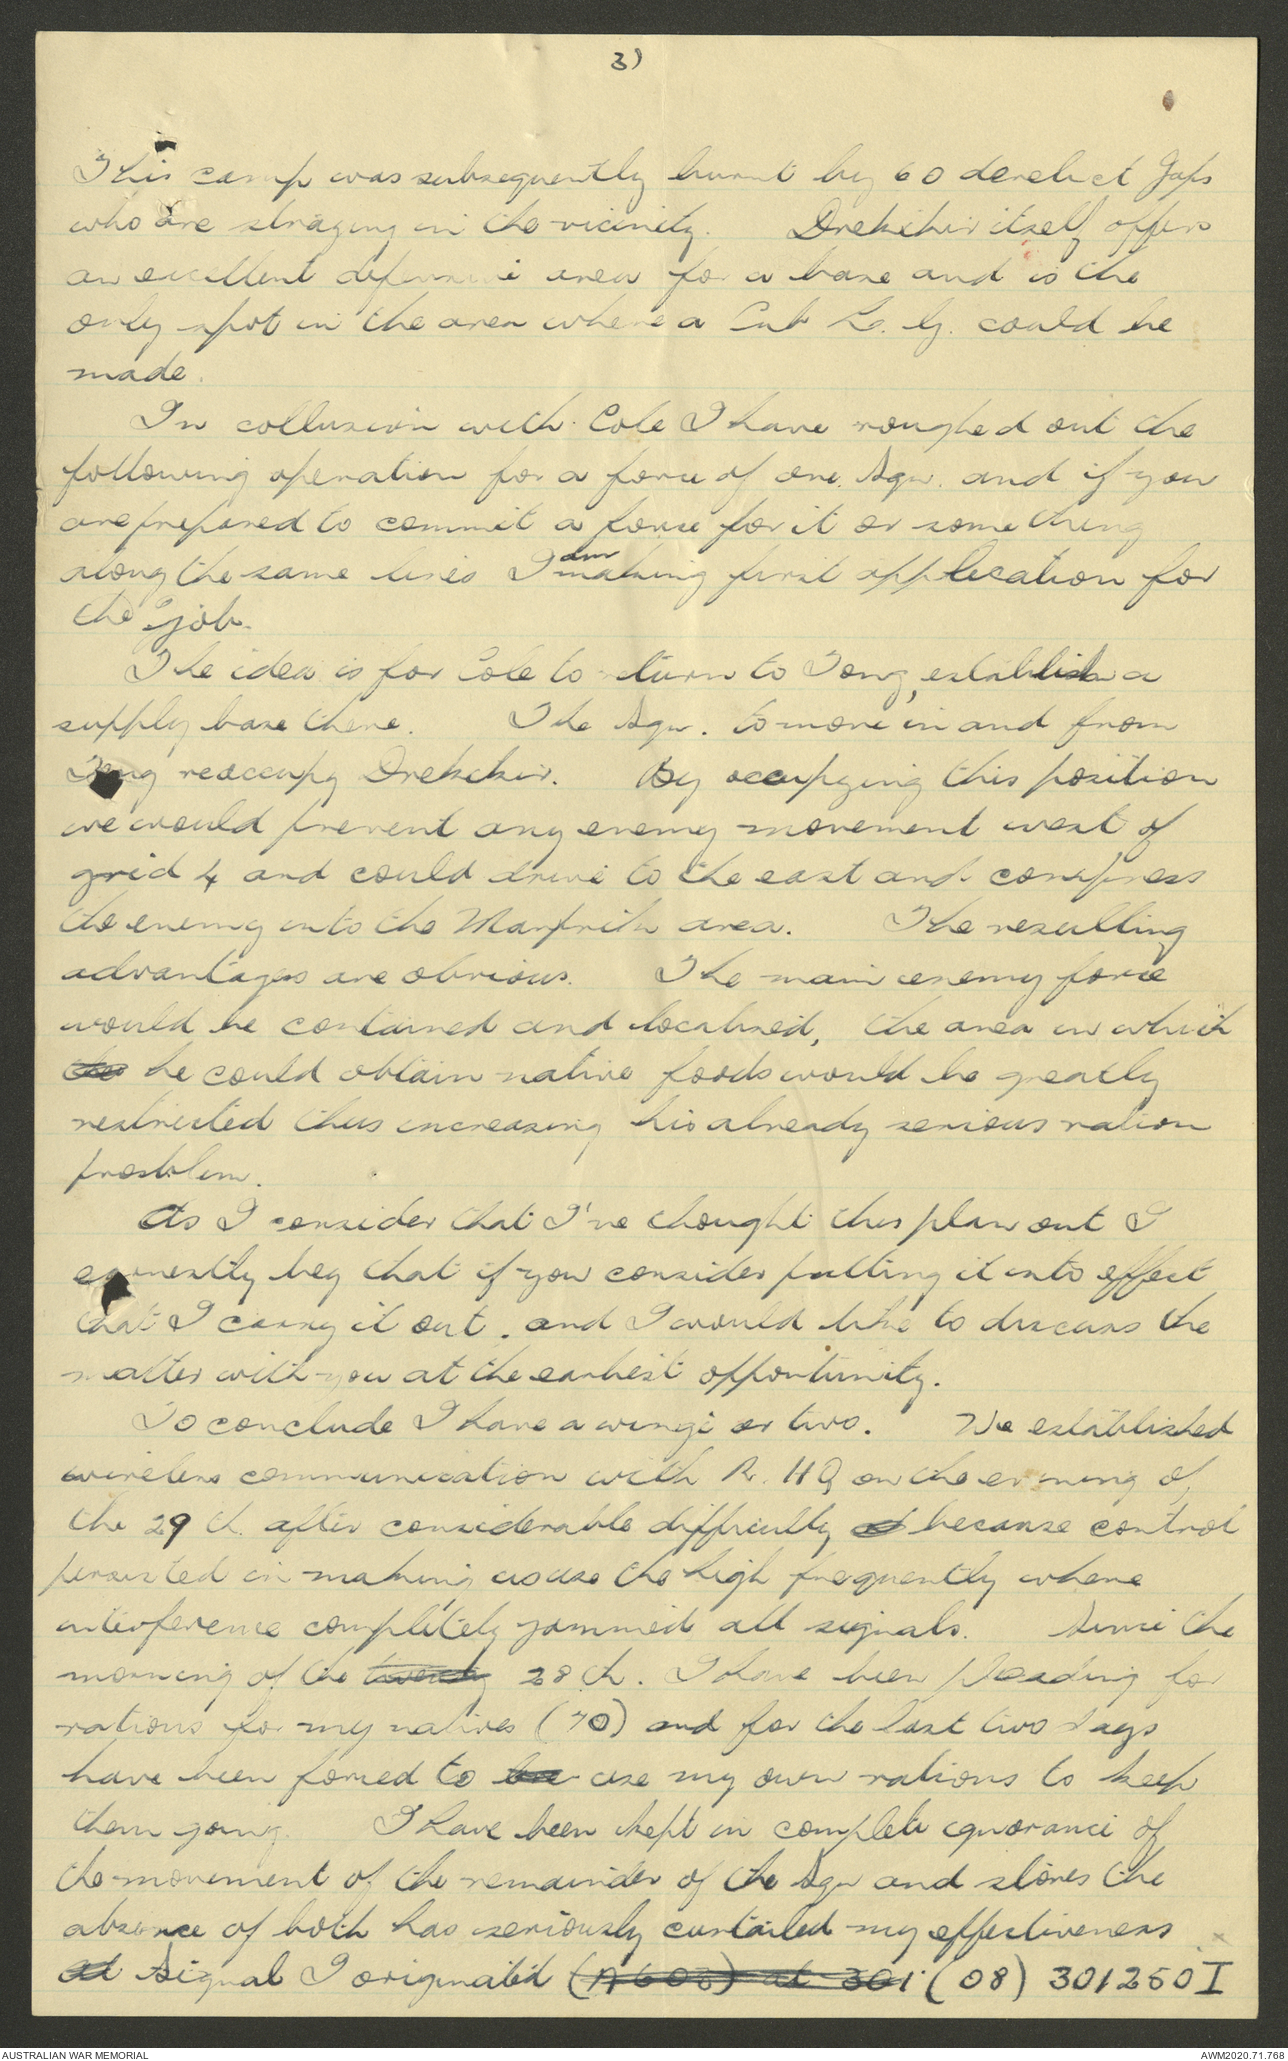 3)
This camp was subsequently burnt by 60 derelict Japs
who are straying in the vicinity. Dreikikir itself offers
an excellent defensive area for a base and is the
only spot in the area where a Cub L. G. could be
made.
In collusion with Cole I have roughed out the
following operation for a force of one Sqn. and if you
are prepared to commit a force for it or something
along the same lines I am making first application for
the job.
The idea is for Cole to return to Tong, establish a
supply base there. The Sqn. to move in and from
Tong reoccupy Dreikikir. By occupying this position
we would prevent any enemy movement west of
grid 4 and could drive to the east and compress
the enemy into the Maprik area. The resulting
advantages are obvious. The main enemy force
would be contained and localised, the area in which
the he could obtain native foods would be greatly
restricted thus increasing his already serious ration
problem.
As I consider that I've thought this plan out I
earnestly beg that if you consider putting it into effect
that I carry it out, and I would like to discuss the
matter with you at the earliest opportunity.
To conclude I have a winge or two. We established
wireless communication with R. HQ on the evening of
the 29th. after considerable difficulty because control
persisted in making us use the high frequently where
interference completely jammed all signals. Since the
morning of the twenty 28th. I have been pleading for
rations for my natives (70) and for the last two days
have been forced to use my own rations to keep
them going. I have been kept in complete ignorance of
the movement of the remainder of the Sqn and stores the
absence of both has seriously curtailed my effectiveness
Signal I originated (A602) at 301 (08) 301250I
AUSTRALIAN WAR MEMORIAL
AWM2020.71.768